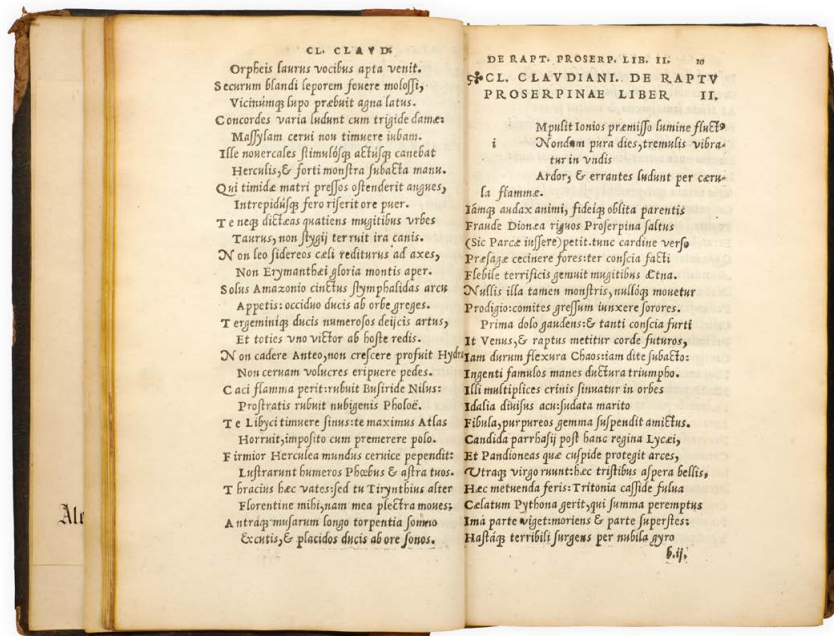 CL. CLAVD.
Orpheis laurus vocibus apta venit.
Securum blandi leporem fouere molossi,
Vicinúmq; lupo præbuit agna latus.
Concordes varia ludunt cum trigide damæ:
Massylam cerui non timuere iubam.
Ille nouercales stimulósq; actúsq; canebat
Herculis, & forti monstra subacta manu.
Qui timidæ matri pressos ostenderit angues,
Intrepidúsq; fero riserit ore puer.
Te neq; dictæas quatiens mugitibus vrbes
Taurus, non stygij terruit ira canis.
Non leo sidereos cæli rediturus ad axes,
Non Erymanthæi gloria montis aper.
Solus Amazonio cinctus stymphalidas arcu
Appetis: occiduo ducis ab orbe greges.
Tergeminiq; ducis numerosos deijcis artus,
Et toties vno victor ab hoste redis.
Non cadere Anteo, non crescere profuit Hydræ
Non ceruam volucres eripuere pedes.
Caci flamma perit: rubuit Busiride Nilus:
Prostratis rubuit nubigenis Pholoë.
Te Libyci timuere sinus: te maximus Atlas
Horruit, imposito cum premerere polo.
Firmior Herculea mundus ceruice pependit:
Lustrarunt humeros Phœbus & astra tuos.
Thracius hæc vates: sed tu Tirynthius alter
Florentine mihi, nam mea plectra moues;
Antráq; musarum longo torpentia somno
Excutis, & placidos ducis ab ore sonos.
Ale
DE RAPT. PROSERP. LIB. II. 10
CL. CLAVDIANI. DE RAPTV
PROSERPINAE LIBER II.
i Mpulit Ionios præmisso lumine fluctꝰ
Nondum pura dies, tremulis vibra-
tur in vndis
Ardor, & errantes ludunt per cæru-
la flammæ.
Iámq; audax animi, fideiq; oblita parentis
Fraude Dionæa riguos Proserpina saltus
(Sic Parcæ iussere) petit. tunc cardine verso
Præsagæ cecinere fores: ter conscia facti
Flebile terrificis gemuit mugitibus Ætna.
Nullis illa tamen monstris, nullóq; mouetur
Prodigio: comites gressum iunxere sorores.
Prima dolo gaudens: & tanti conscia furti
It Venus, & raptus metitur corde futuros,
Iam durum flexura Chaos: iam dite subacto:
Ingenti famulos manes ductura triumpho.
Illi multiplices crinis sinuatur in orbes
Idalia diuisus acu: sudata marito
Fibula, purpureos gemma suspendit amictus.
Candida parrhasij post hanc regina Lycæi,
Et Pandioneas quæ cuspide protegit arces,
Vtraq; virgo ruunt: hæc tristibus aspera bellis,
Hæc metuenda feris: Tritonia casside fulua
Cælatum Pythona gerit, qui summa peremptus
Ima parte viget: moriens & parte superstes:
Hastáq; terribili surgens per nubila gyro
b.ij.